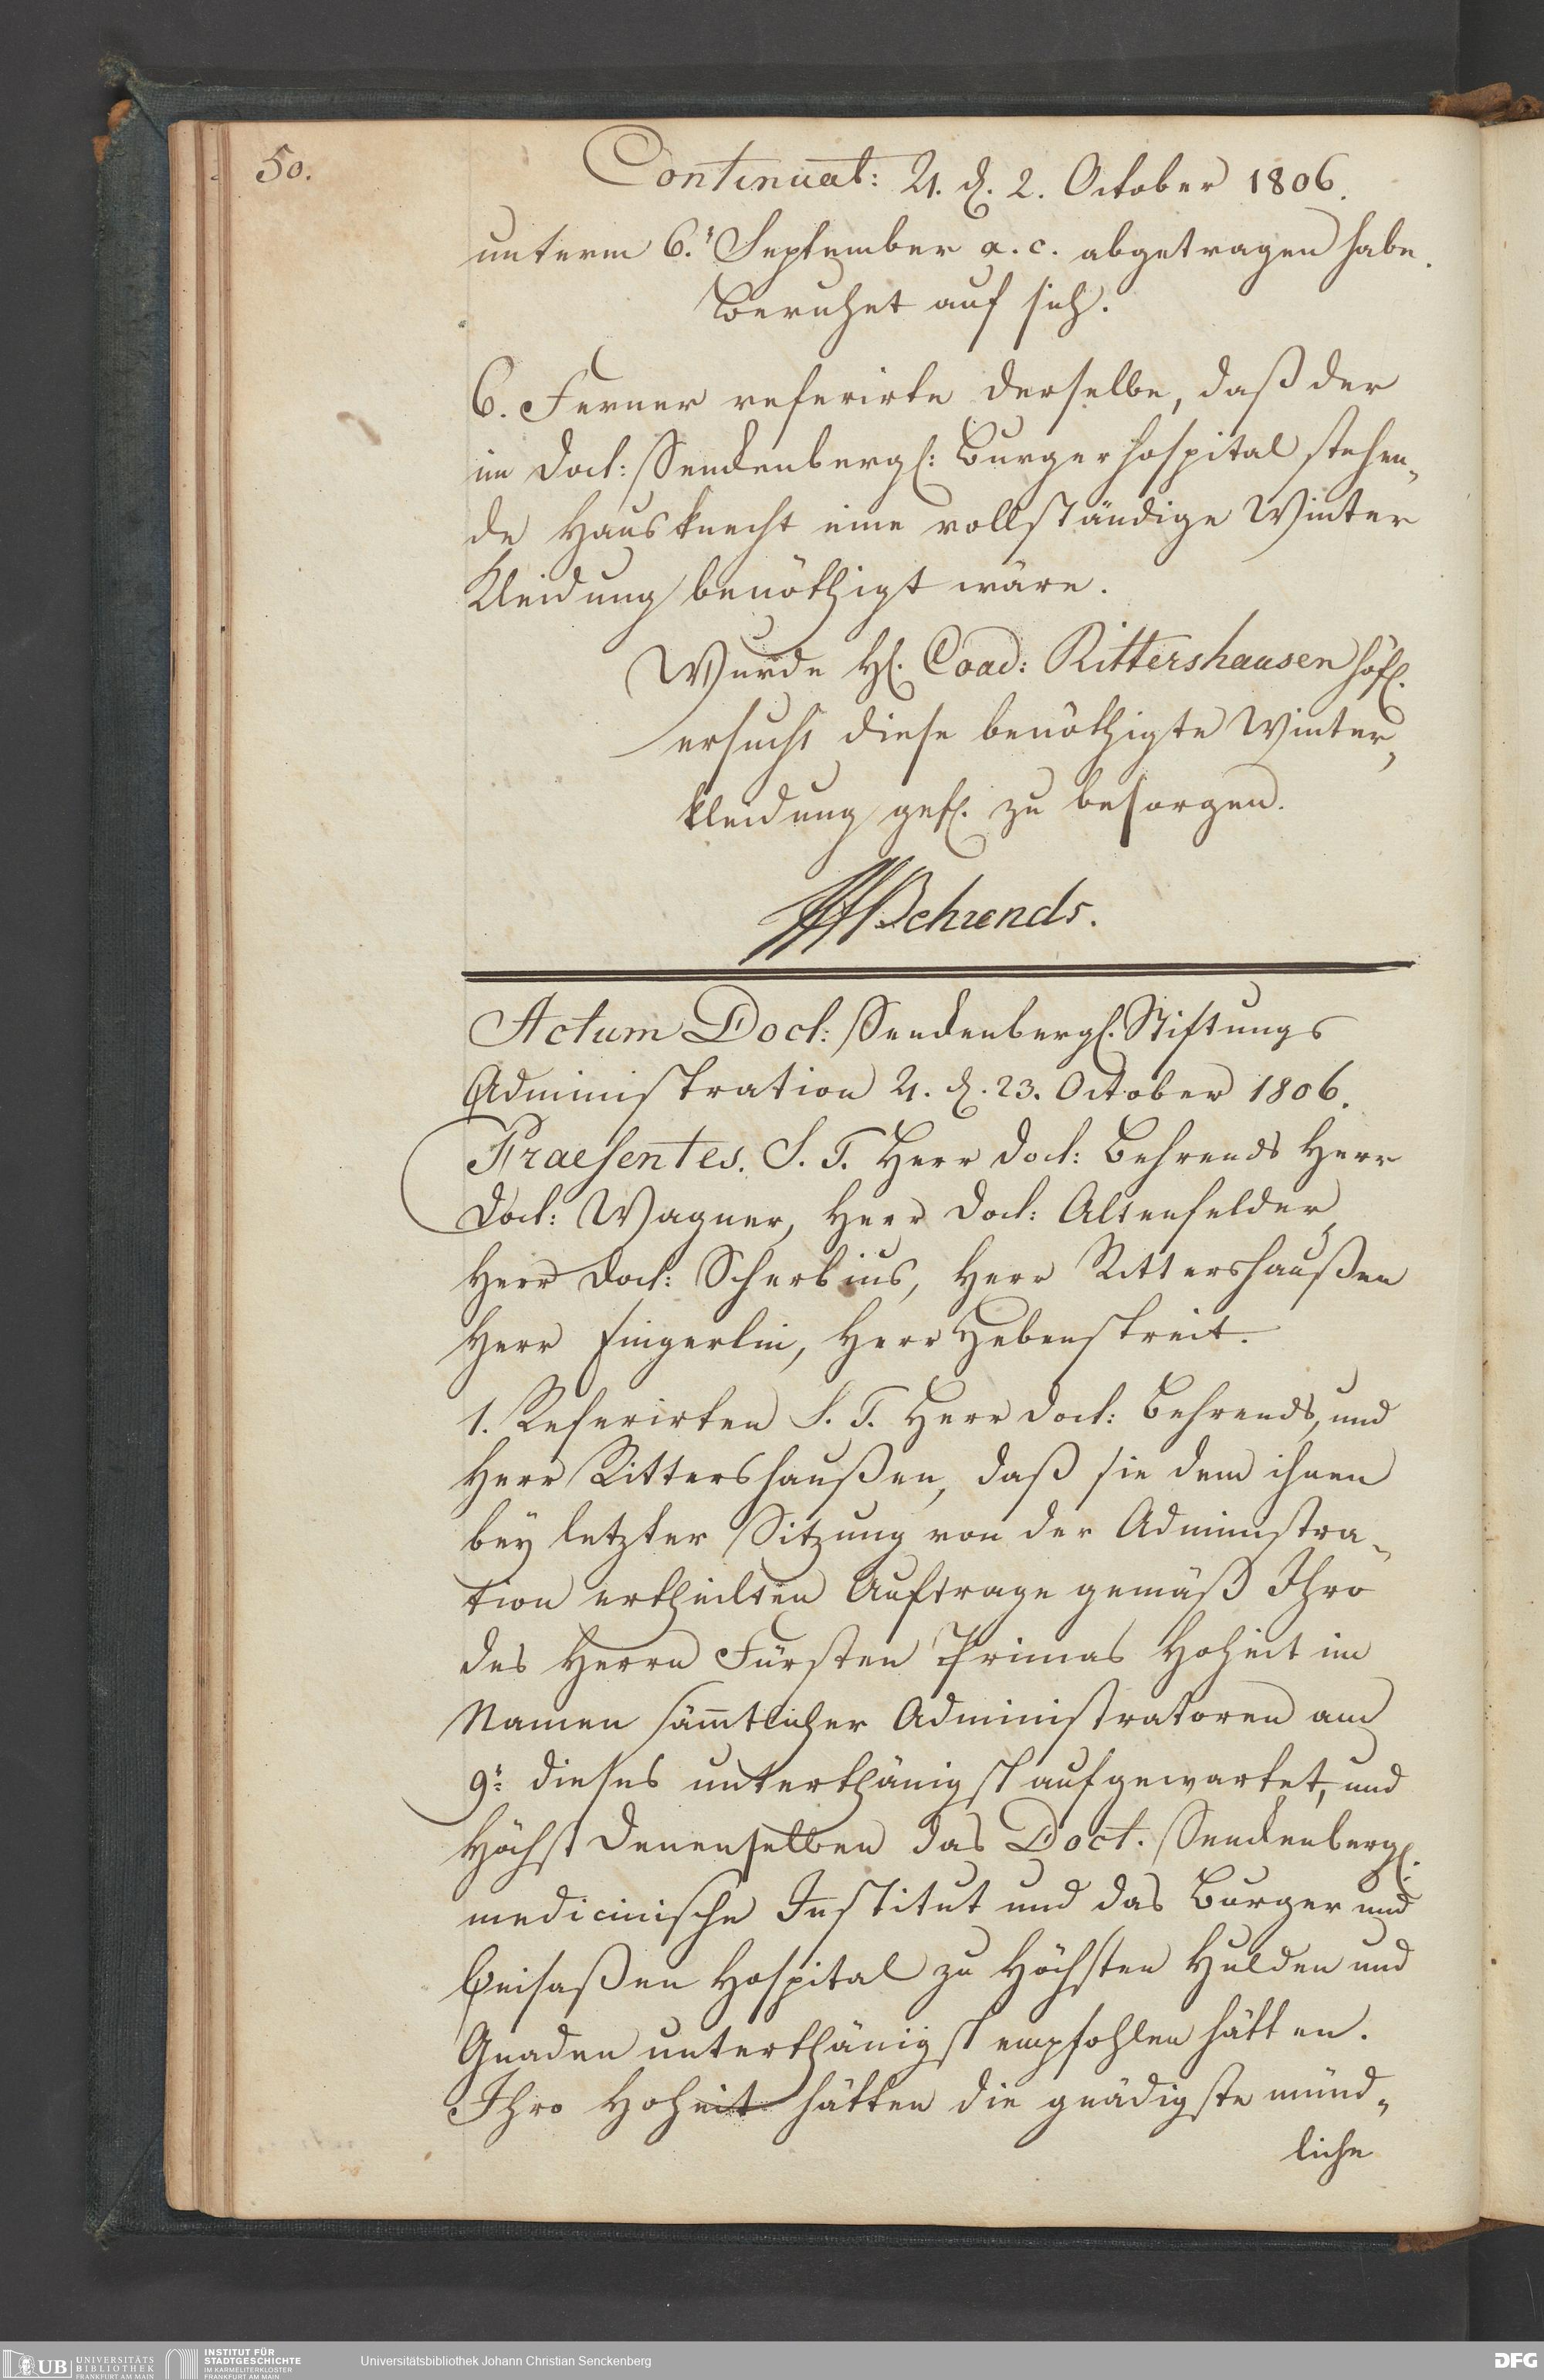 50.
Continuat: 4. d. 2. October 1806.
unterm 6.t September a. c. abgetragen habe.
Beruhet auf sich.
6. Ferner referirte derselbe, daß der
im Doct: Senckenbergl: Burgerhospital stehen„
de Hausknecht eine vollständige Winter
Kleidung benöthigt wäre.
Wurde H. Coad: Rittershausen höfl.
ersucht diese benöthigte Winter„
kleidung gefl. zu besorgen.
Behrends.
Actum Doct: Senckenbergl. Stiftungs
Administration 4. d. 23. October 1806.
Praesentes. S. T. Herr Doct: Behrends Herr
Doct: Wagner, Herr Doct: Altenfelder,
Herr Doct: Scherbius, Herr Rittershaußen
Herr Fingerlin, Herr Hebenstreit.
1. Referirten S. T. Herr Doct: Behrends, und
Herr Rittershaußen, daß sie dem ihnen
bey letzter Sitzung von der Administra„
tion ertheilten Auftrage gemäß Ihro
des Herrn Fürsten Primas Hoheit im
Namen sämtlicher Administratoren am
9t: dieses unterthänigst aufgewartet, und
Höchst Denenselben das Doct. Senckenbergl.
medicinische Institut und das Burger und
Beisaßen Hospital zu Höchsten Hulden und
Gnaden unterthänigst empfohlen hätten.
Ihro Hoheit hätten die gnädigste münd„
liche
UB UNIVERSITÄTS
BIBLIOTHEK
FRANKFURT AM MAIN
INSTITUT FÜR
STADTGESCHICHTE
IM KARMELITERKLOSTER
FRANKFURT AM MAIN
Universitätsbibliothek Johann Christian Senckenberg
DFG